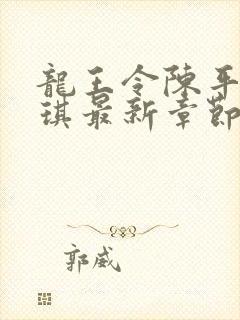 龍王令陳平
琪最新章節
郭威